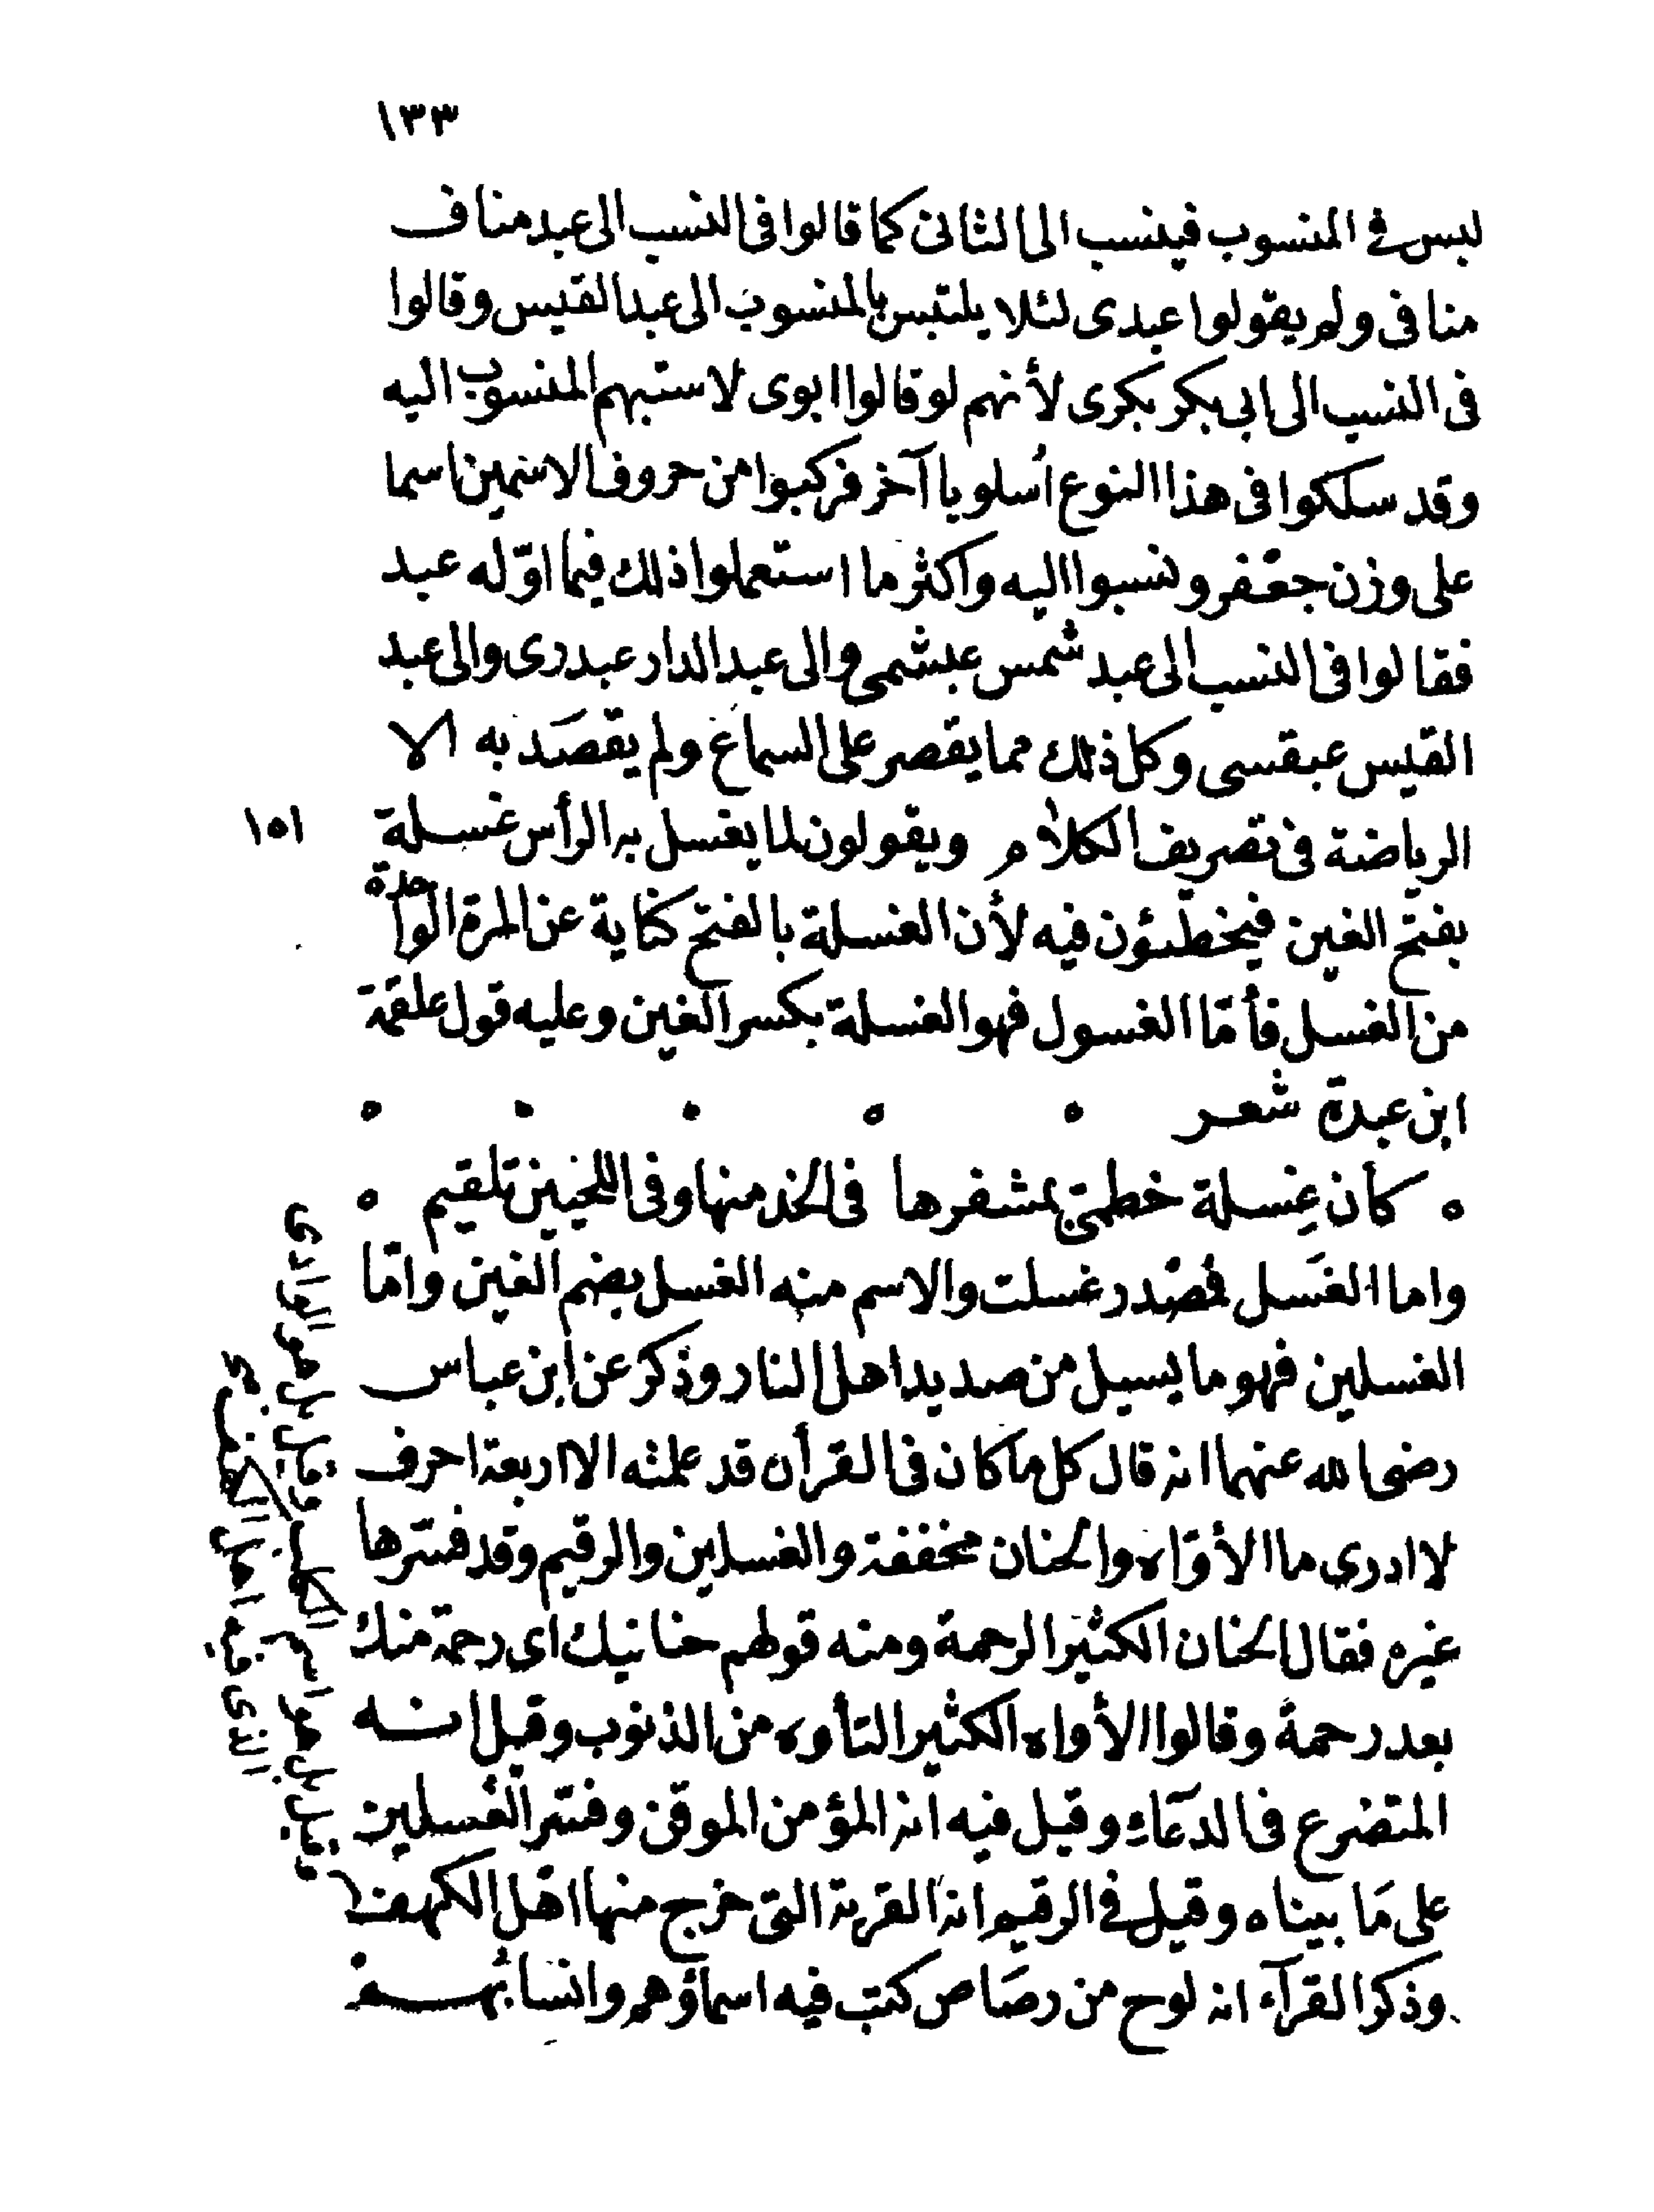 ١٣٣
لبس في المنسوب فينسب الى الثانى كما قالوا فى النسب الى عبد مناف
منافى ولم يقولوا عبدى لئلا يلتبس بالمنسوب الى عبد القيس وقالوا
فى النسب الى ابى بكر بكرى لأنهم لو قالوا ابوى لاستبهم المنسوب اليه
وقد سلكوا فى هذا النوع أسلوبا آخر فركبوا من حروف الاسمين اسما
على وزن جعفر ونسبوا اليه واكثر ما استعملوا ذلك فيما اوّله عبد
فقالوا فى النسب الى عبد شمس عبشمى والى عبد الدار عبدرى والى عبد
القيس عبقسى وكل ذلك مما يقصر على السماع ولم يقصد به الا
الرياضة فى تصريف الكلام ويقولون لما يغسل به الرأس غسلة
١٥١
بفتح الغين فيخطئون فيه لأن الغسلة بالفتح كناية عن المرة الواحدة
من الغسل فأمّا الغسول فهو الغسلة بكسر الغين وعليه قول علقمة
ابن عبدة شعر
كأن غِسلة خطمىّ بمشفرها فى الخد منها وفى اللحيين تلقيم
واما الغَسل فمصدر غسلت والاسم منه الغسل بضم الغين وامّا
الغسلين فهو ما يسيل من صديد اهل النار وذكر عن ابن عباس
رضى الله عنهما انه قال كل ما كان فى القرأن قد علمته الا اربعة احرف
لا ادرى ما الأوّاه والحنان مخففة والغسلين والرقيم وقد فسّرها
غيره فقال الحنان الكثير الرحمة ومنه قولهم حنانيك اى رحمة منك
بعد رحمة وقالوا الأواه الكثير التأوه من الذنوب وقيل انه
المتضرع فى الدعآء وقيل فيه انه المؤمن الموقن وفسّر الغسلين
على مَا بيناه وقيل فى الرقيم انه القرية التى خرج منها اهل الكهف
وذكر القرآء انه لوح من رصَاص كتب فيه اسماؤهم وانسابهم
وقيل هو الوادى
وقيل هو اسم
الذى فيه